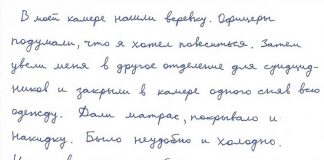 В моей камере нашли веревку. Офицеры
подумали, что я хотел повеситься. Затем
увели меня в другое отделение для суицид-
ников и закрыли в камере одного сняв всю
одежду. Дали матрас, покрывало и
накидку. Было неудобно и холодно.